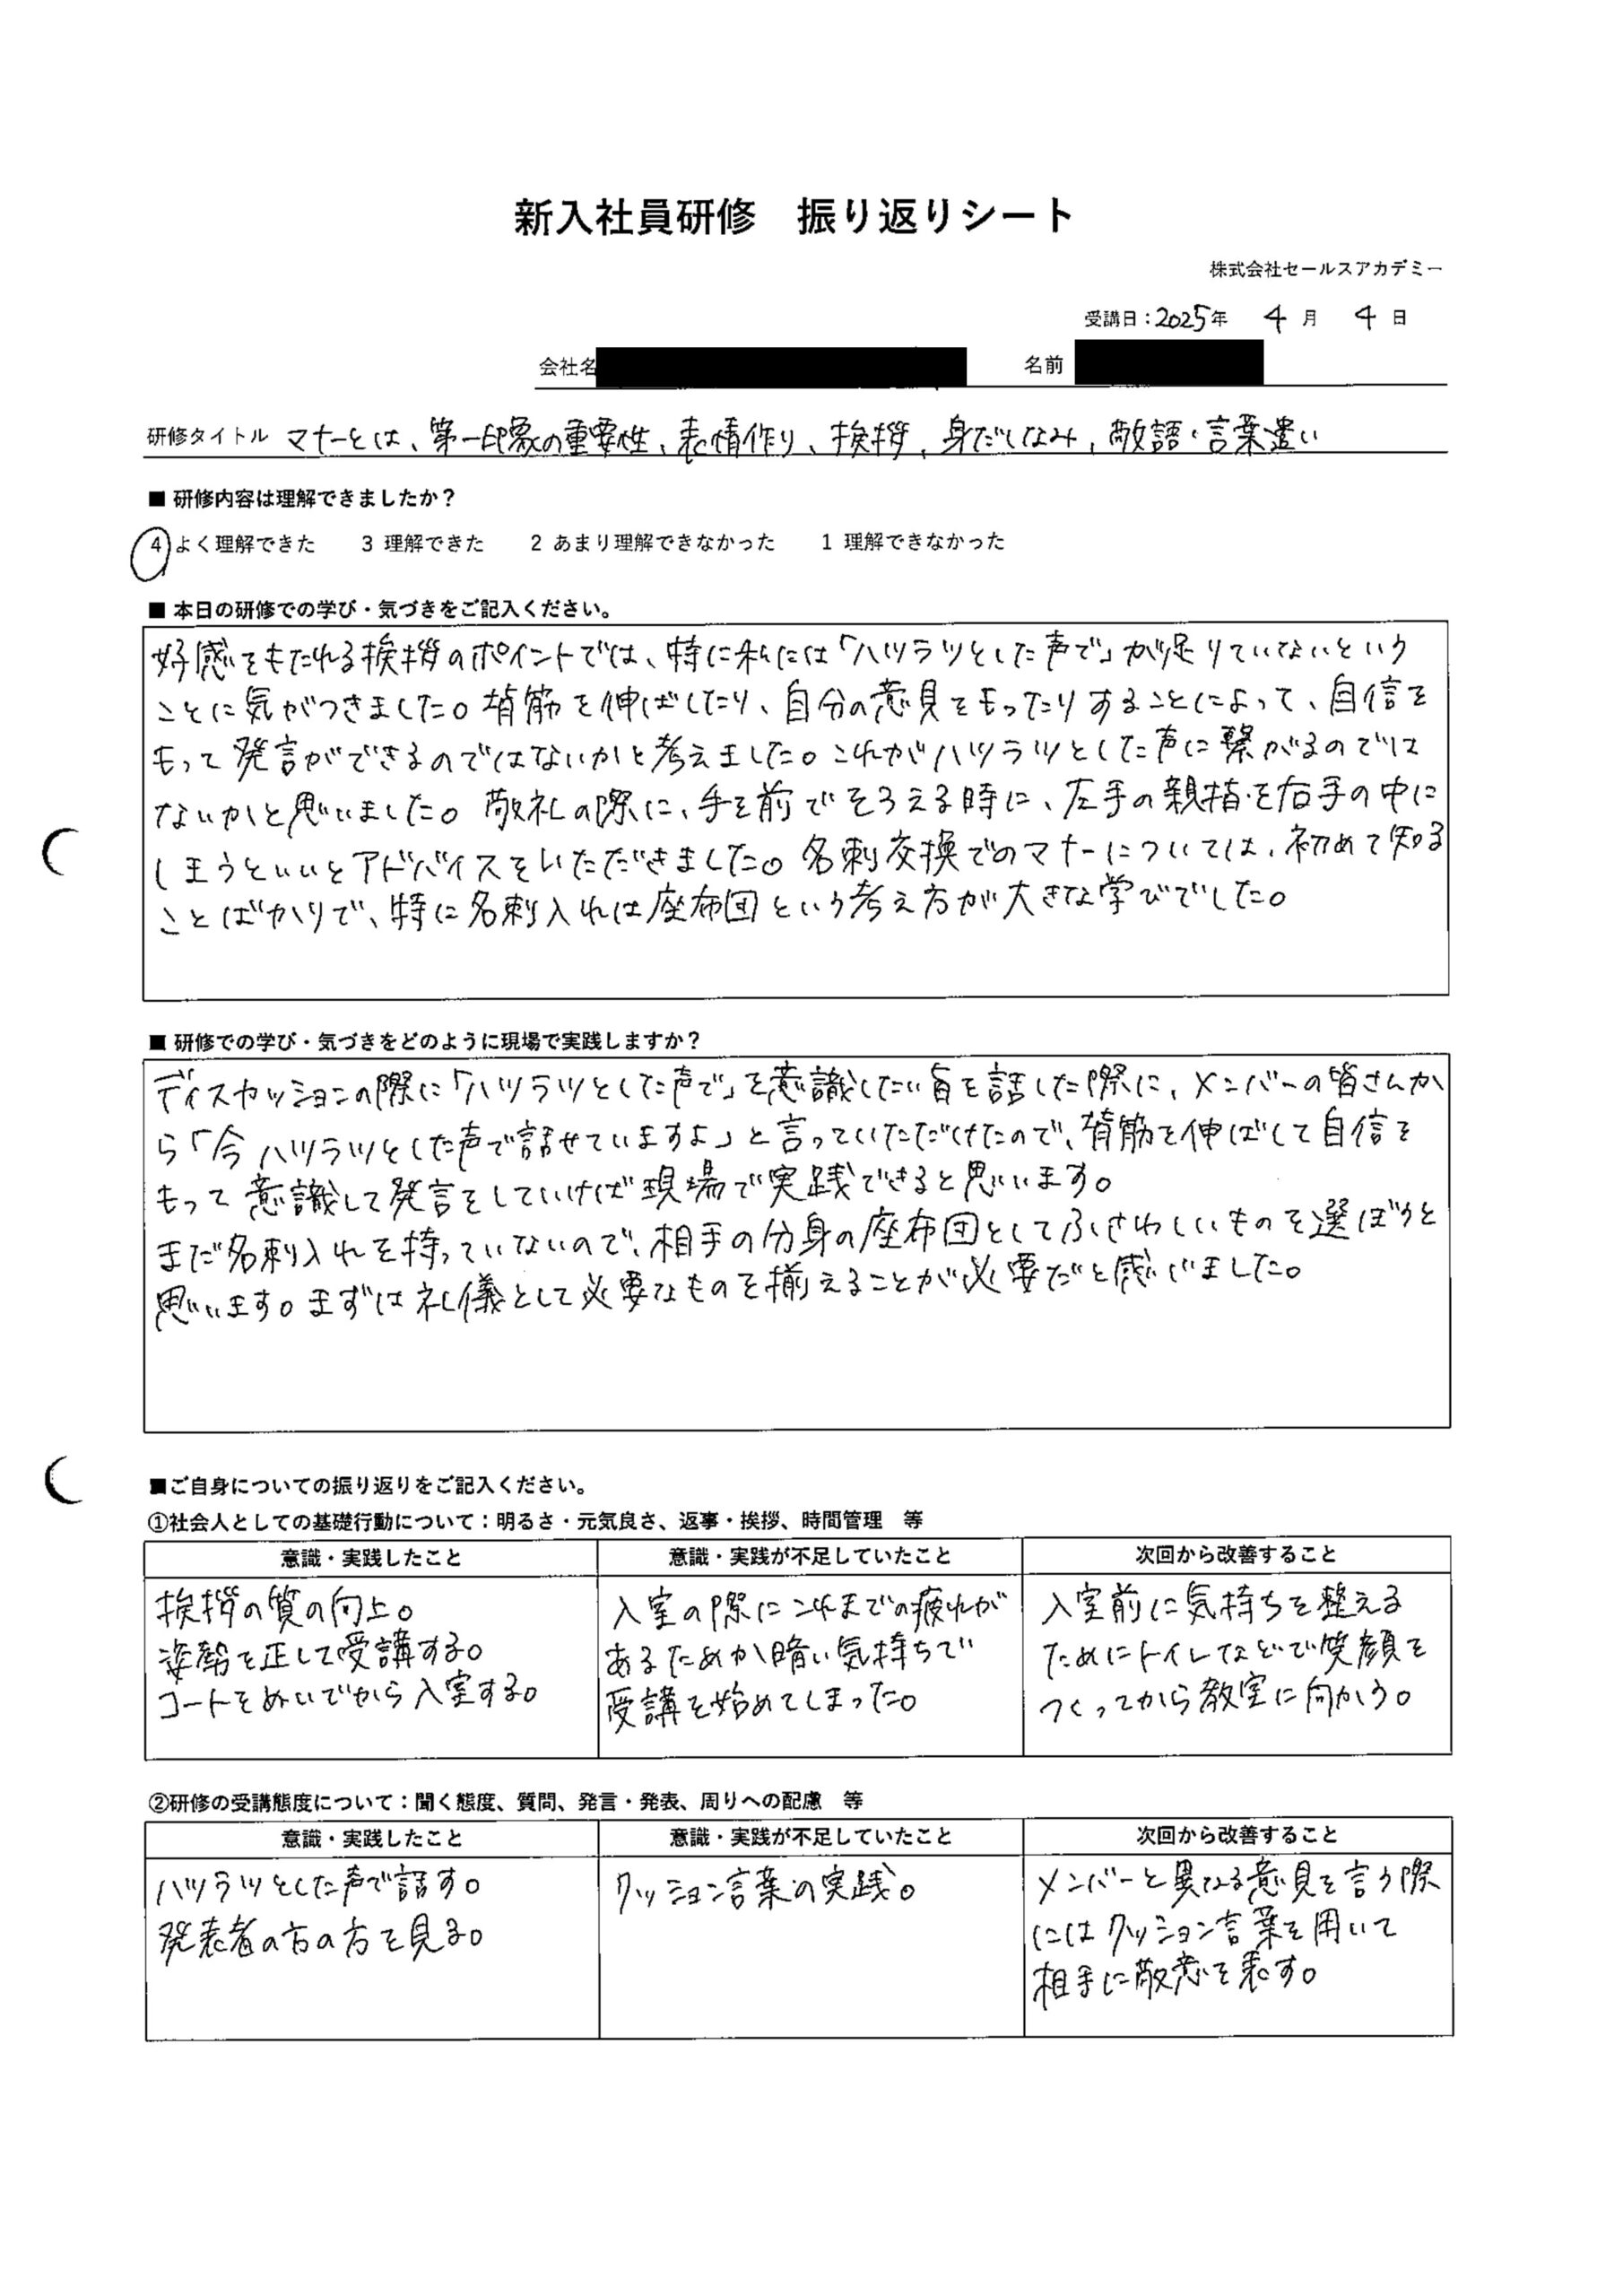 新入社員研修　振り返りシート
株式会社セールスアカデミー
受講日：2025年　4月　4日
会社名　名前
研修タイトル マナーとは、第一印象の重要性、表情作り、挨拶、身だしなみ、敬語・言葉遣い
■ 研修内容は理解できましたか？
4 よく理解できた　3 理解できた　2 あまり理解できなかった　1 理解できなかった
■ 本日の研修での学び・気づきをご記入ください。
好感をもたれる挨拶のポイントでは、特に私には「ハツラツとした声で」が足りていないという
ことに気がつきました。背筋を伸ばしたり、自分の意見をもったりすることによって、自信を
もって発言ができるのではないかと考えました。これがハツラツとした声に繋がるのでは
ないかと思いました。敬礼の際に、手を前でそろえる時に、左手の親指を右手の中に
しまうといいとアドバイスをいただきました。名刺交換でのマナーについては、初めて知る
ことばかりで、特に名刺入れは座布団という考え方が大きな学びでした。
■ 研修での学び・気づきをどのように現場で実践しますか？
ディスカッションの際に「ハツラツとした声で」を意識したい旨を話した際に、メンバーの皆さんか
ら「今ハツラツとした声で話せていますよ」と言っていただけたので、背筋を伸ばして自信を
もって意識して発言をしていけば現場で実践できると思います。
まだ名刺入れを持っていないので、相手の分身の座布団としてふさわしいものを選ぼうと
思います。まずは礼儀として必要なものを揃えることが必要だと感じました。
■ご自身についての振り返りをご記入ください。
①社会人としての基礎行動について：明るさ・元気良さ、返事・挨拶、時間管理　等
意識・実践したこと　意識・実践が不足していたこと　次回から改善すること
挨拶の質の向上。
姿勢を正して受講する。
コートをぬいでから入室する。
入室の際にこれまでの疲れが
あるためか暗い気持ちで
受講を始めてしまった。
入室前に気持ちを整える
ためにトイレなどで笑顔を
つくってから教室に向かう。
②研修の受講態度について：聞く態度、質問、発言・発表、周りへの配慮　等
意識・実践したこと　意識・実践が不足していたこと　次回から改善すること
ハツラツとした声で話す。
発表者の方の方を見る。
クッション言葉の実践。
メンバーと異なる意見を言う際
にはクッション言葉を用いて
相手に敬意を表す。